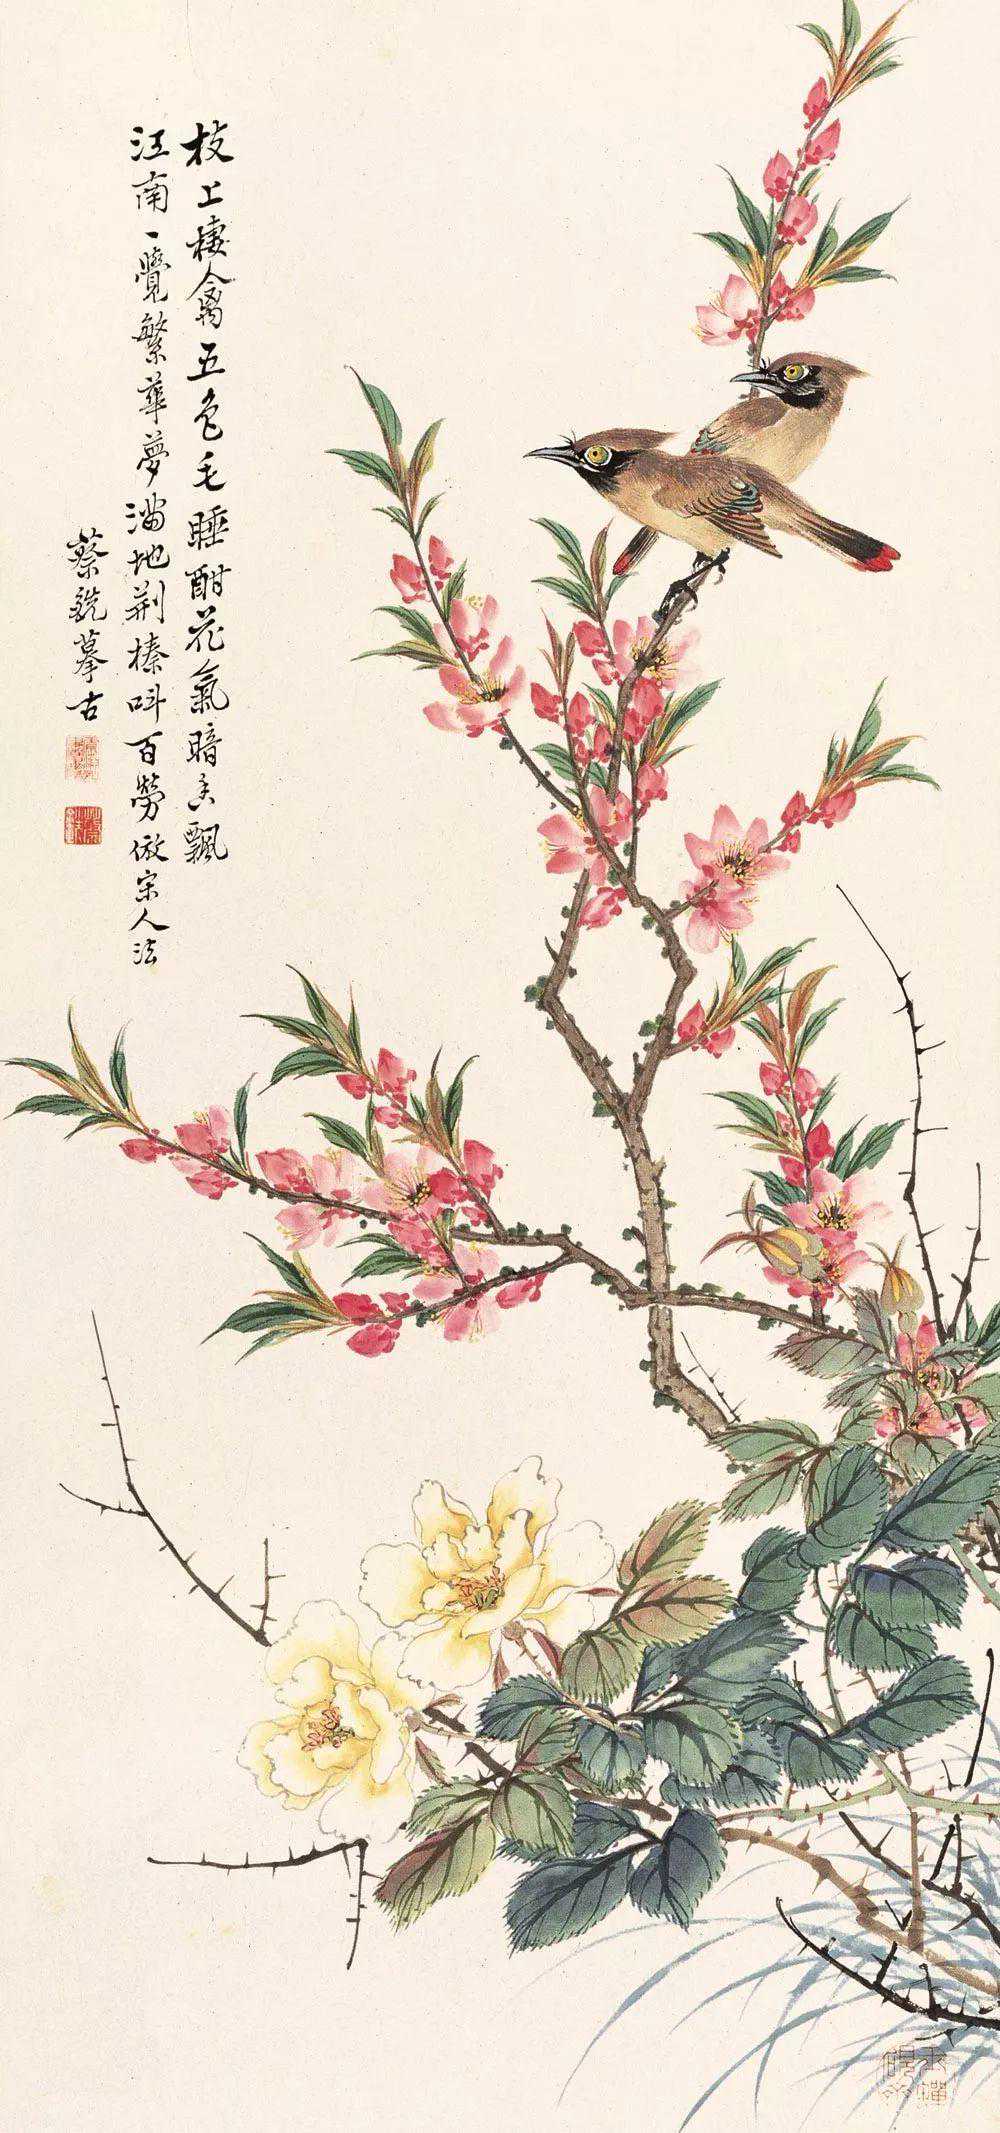 枝上棲禽五色毛睡酣花氣暗香飄
江南一覺繁華夢滿地荆榛叫百勞倣宋人法
蔡銑摹古